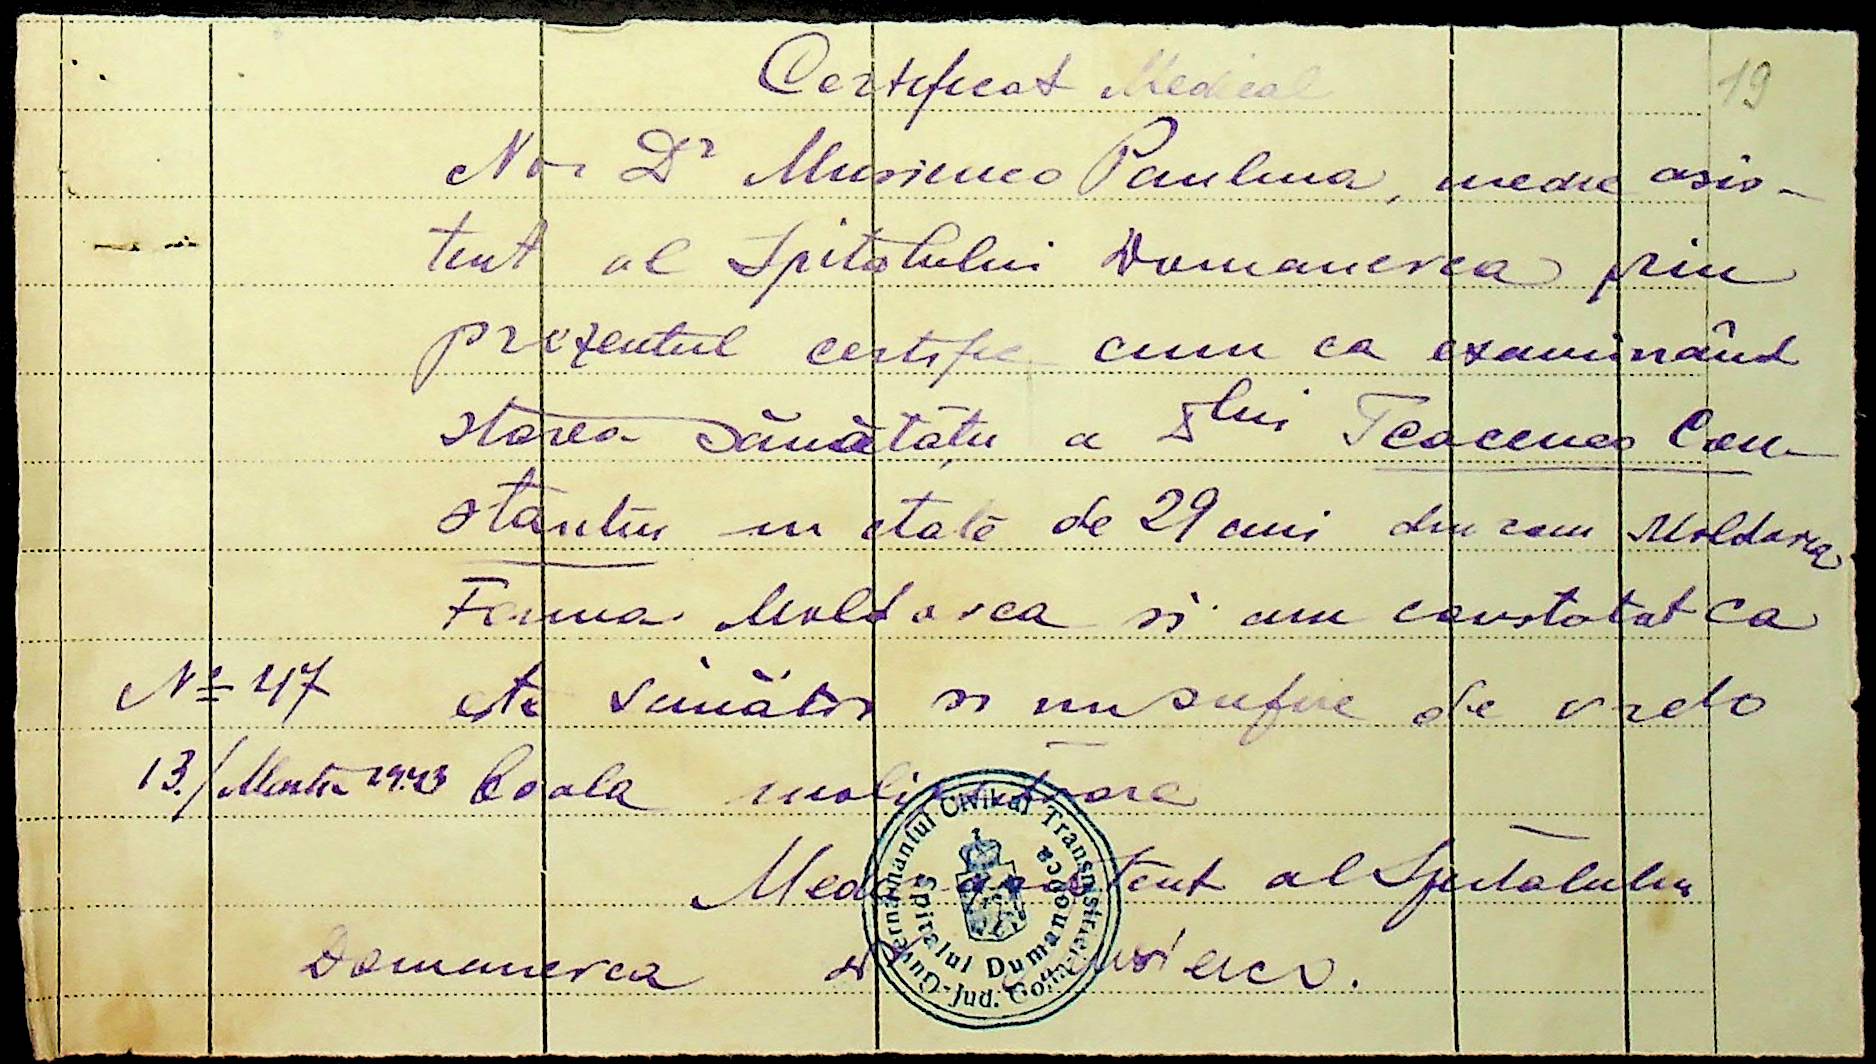 Certificat Medical
19
Noi Dr Musienco Paulina, medic asis-
tent al Spitalului Domanevca prin
prezentul certific cum ca examinând
starea sănătăței a Dlui Tcacenco Con-
stantin in etate de 29 ani din com Moldovca
Ferma Moldovca si am constatat ca
este sănătos si nu sufire de vreo
Nº 47
13./Martie 1943 boala molipsitoare
Medic asistent al Spitalului
Domanevca dr Musienco.
Guvernamantul Civikal Transnistriei
Jud. Golta
Spitalul Dumanouca